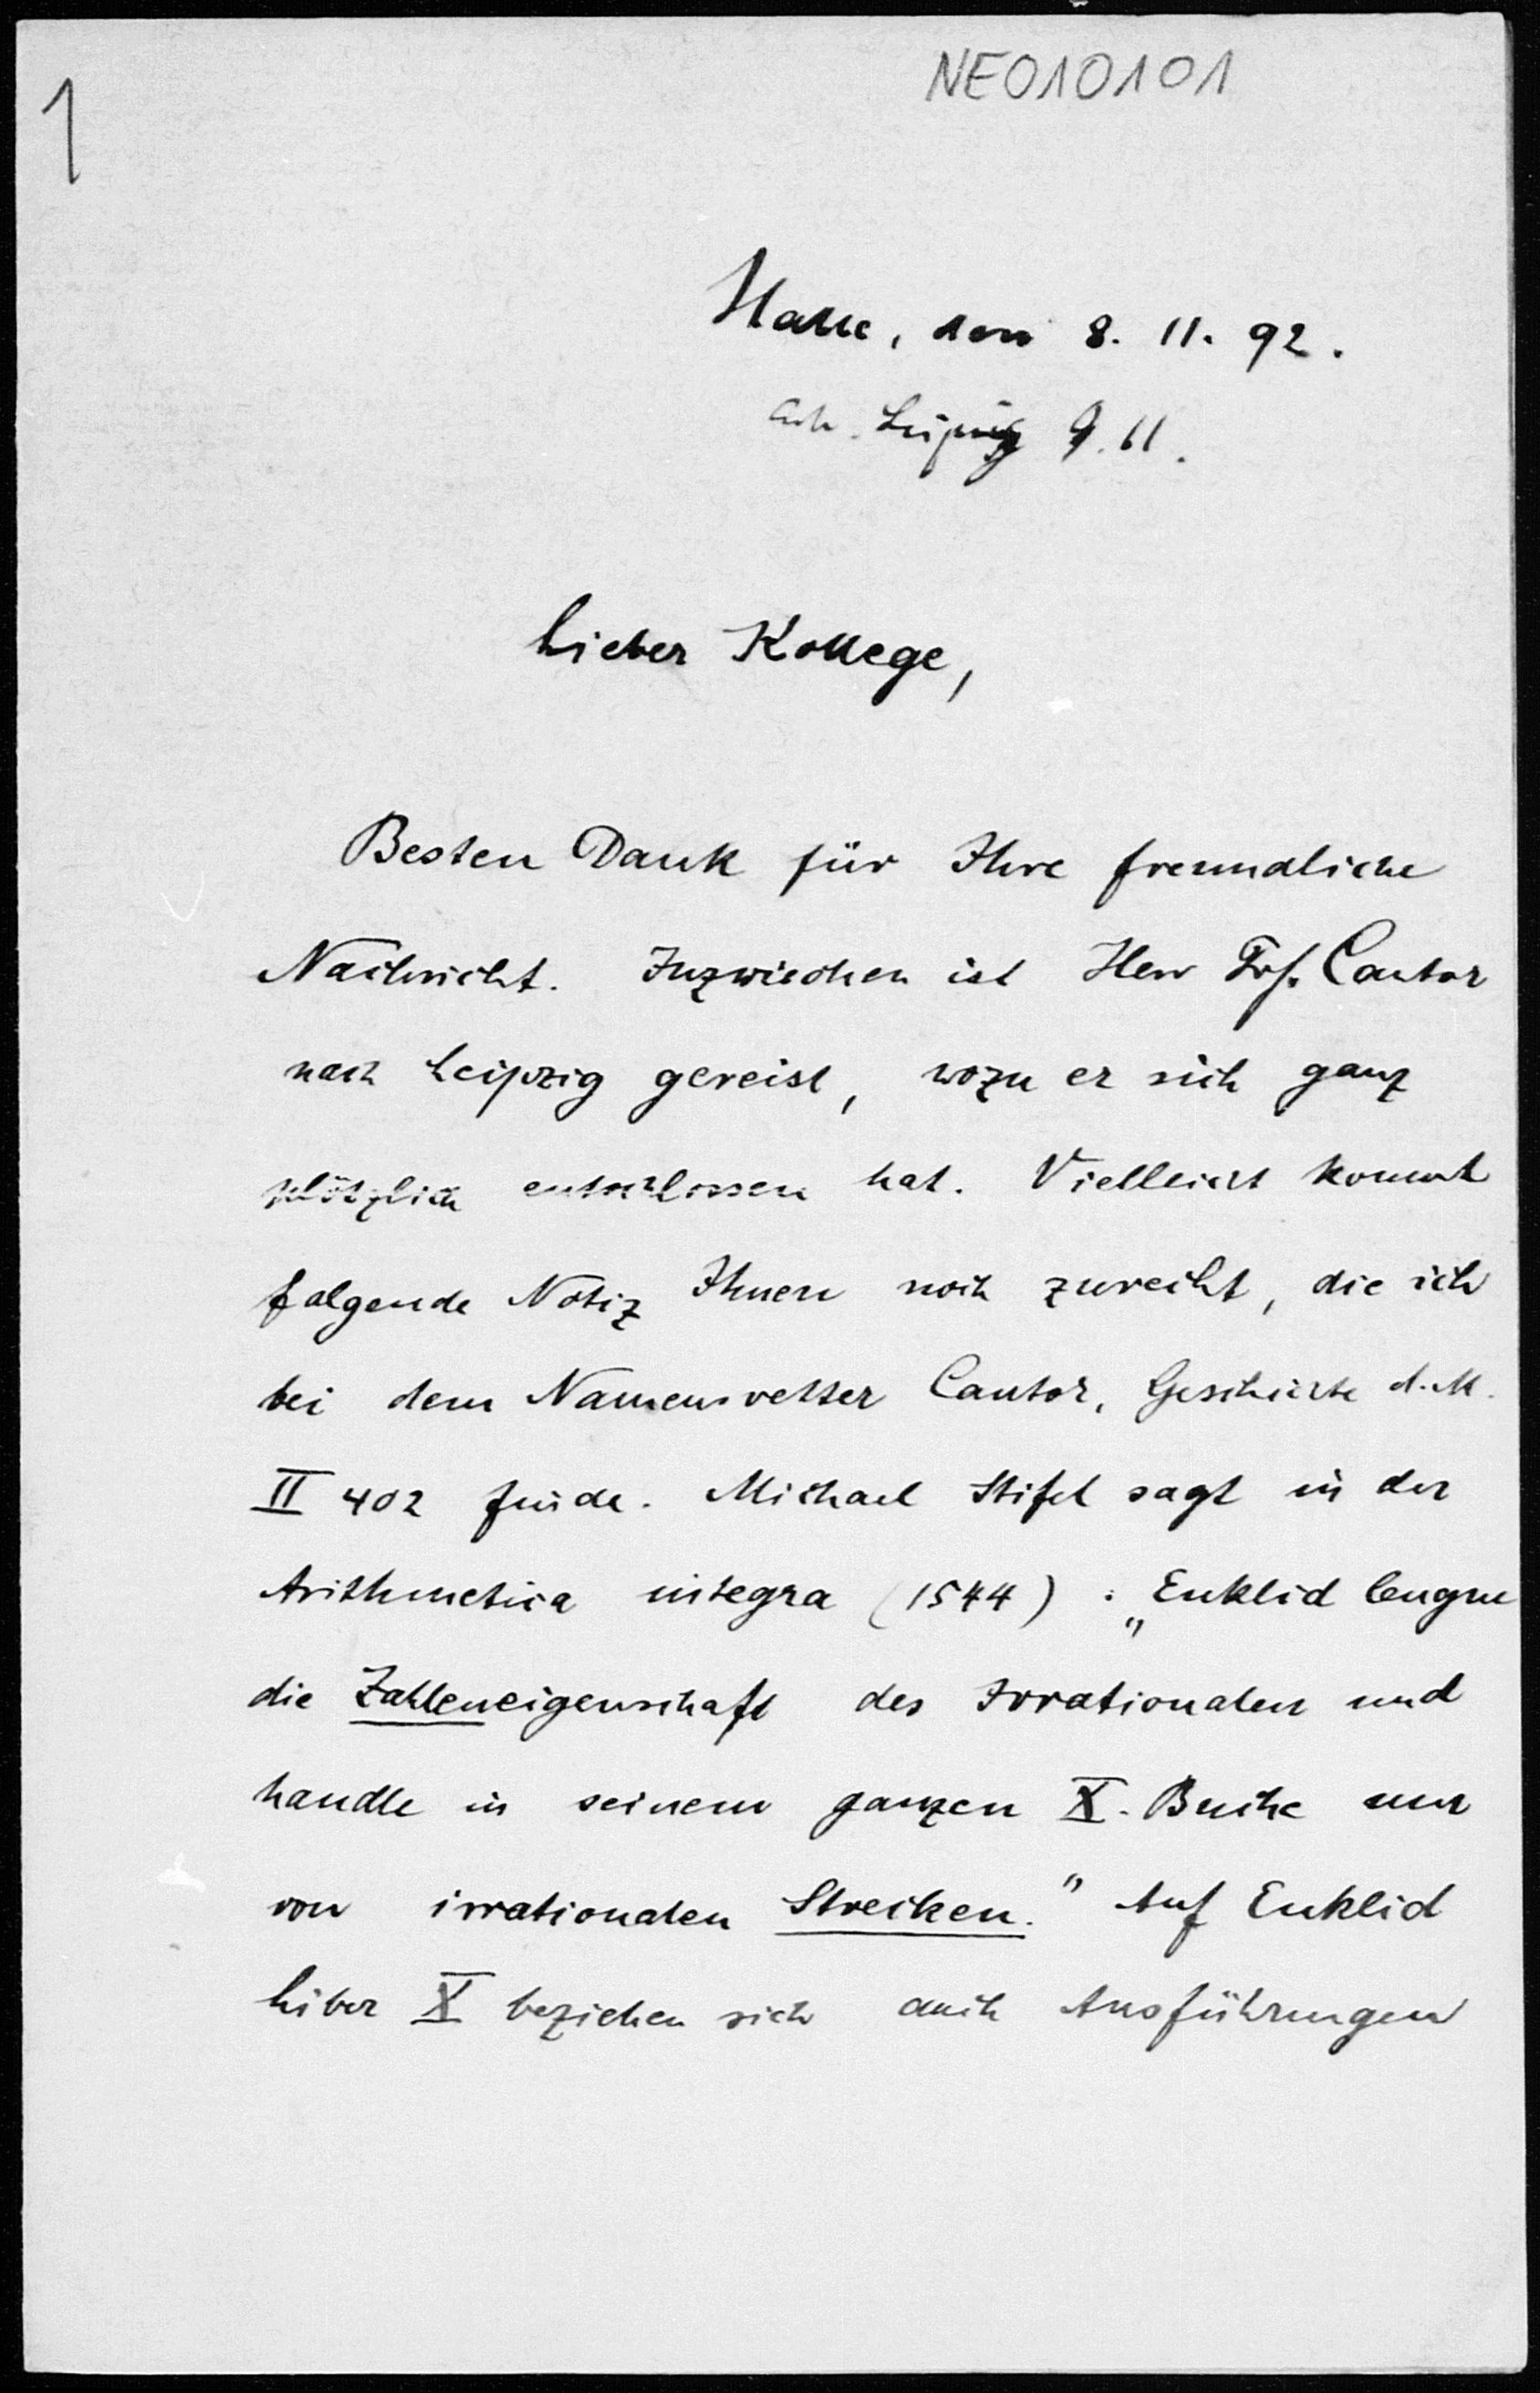 NE010101
1
Halle, den 8. 11. 92.
Leipzig 9. 11.
Lieber Kollege,
Besten Dank für Ihre freundliche
Nachricht. Inzwischen ist Herr Prof. Cantor
nach Leipzig gereist, wozu er sich ganz
plötzlich entschlossen hat. Vielleicht kommt
folgende Notiz Ihnen noch zurecht, die ich
bei dem Namensvetter Cantor, Geschichte d. M.
II 402 finde. Michael Stifel sagt in der
Arithmetica integra (1544) : „Euklid leugne
die Zahleneigenschaft des Irrationalen und
handle in seinem ganzen X. Buche nur
von irrationalen Strecken." Auf Euklid
Liber X beziehen sich auch Ausführungen